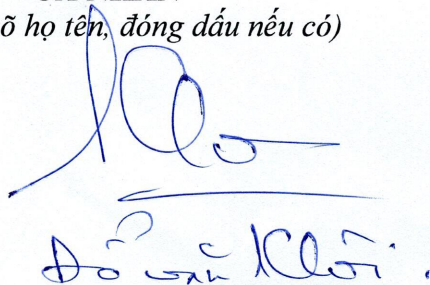 õ họ tên, đóng dấu nếu có)
Đỗ văn Khôi.